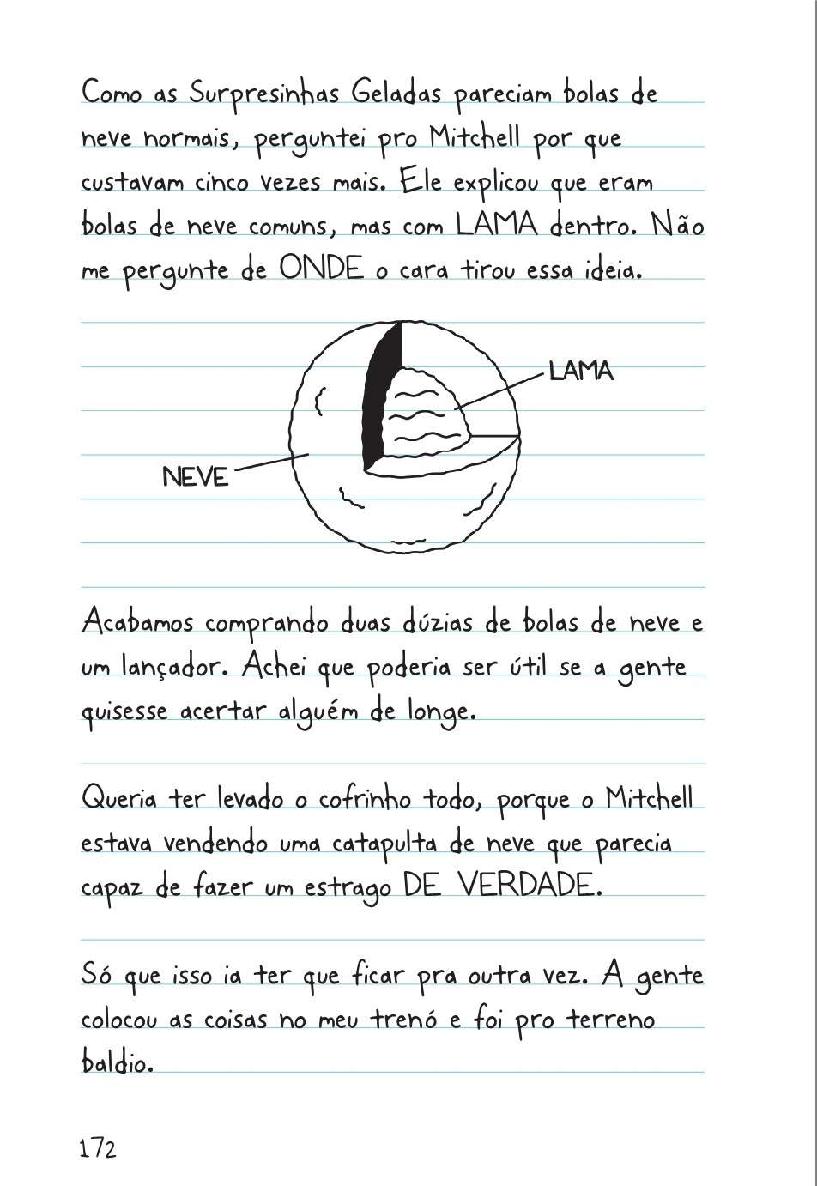 Como as Surpresinhas Geladas pareciam bolas de
neve normais, perguntei pro Mitchell por que
custavam cinco vezes mais. Ele explicou que eram
bolas de neve comuns, mas com LAMA dentro. Não
me pergunte de ONDE o cara tirou essa ideia.
LAMA
NEVE
Acabamos comprando duas dúzias de bolas de neve e
um lançador. Achei que poderia ser útil se a gente
quisesse acertar alguém de longe.
Queria ter levado o cofrinho todo, porque o Mitchell
estava vendendo uma catapulta de neve que parecia
capaz de fazer um estrago DE VERDADE.
Só que isso ia ter que ficar pra outra vez. A gente
colocou as coisas no meu trenó e foi pro terreno
baldio.
172